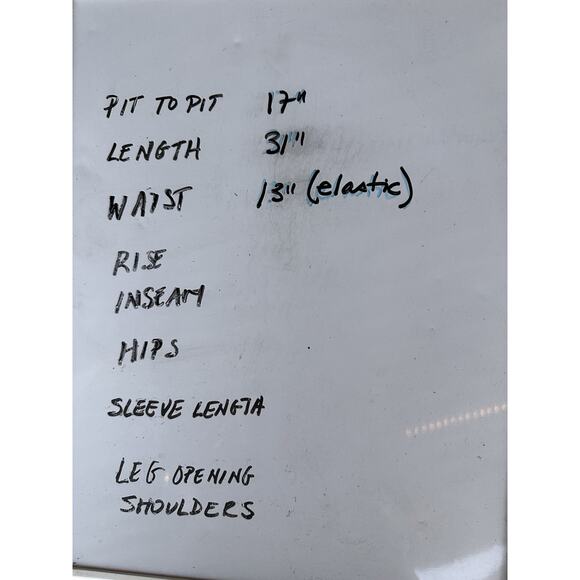 PIT TO PIT 17"
LENGTH 31"
WAIST 13" (elastic)
RISE
INSEAM
HIPS
SLEEVE LENGTH
LEG OPENING
SHOULDERS